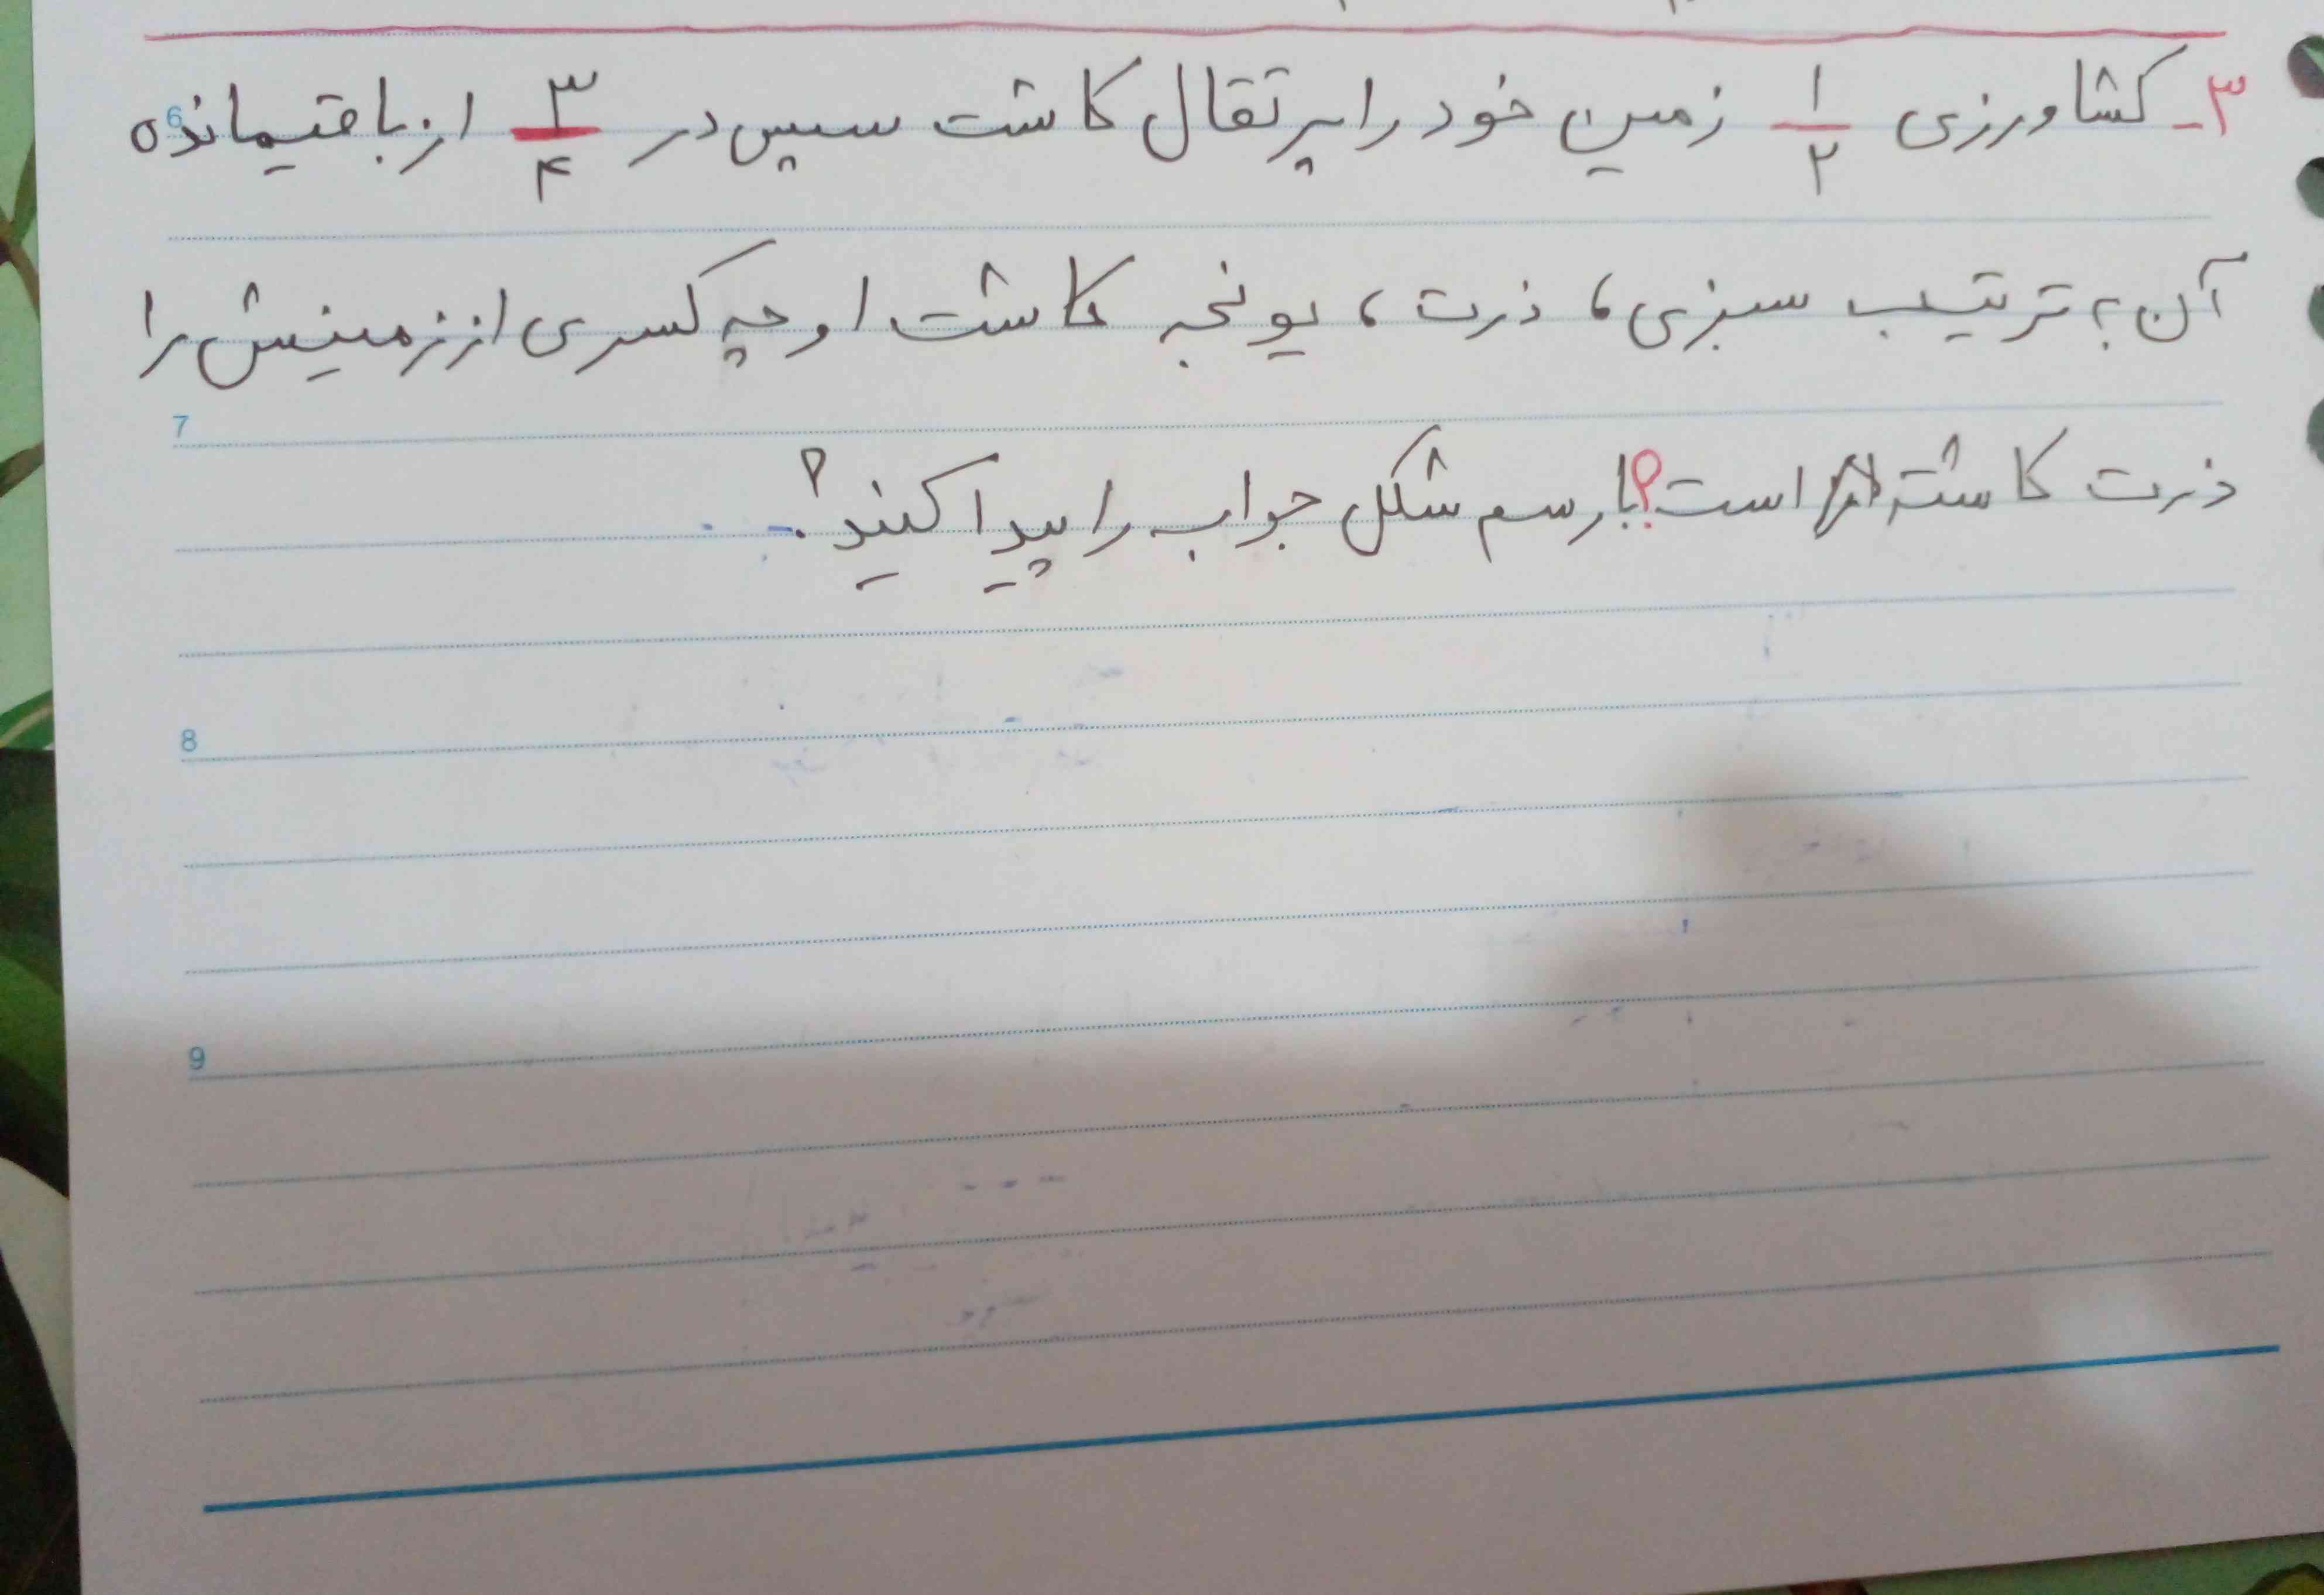 ۳- کشاورزی ۱/۲ زمین خود را پرتقال کاشت سپس در ۳/۴ از باقیمانده
آن به ترتیب سبزی، ذرت، یونجه کاشت او چه کسری از زمینش را
ذرت کاشته است؟ با رسم شکل جواب را پیدا کنید؟
6
7
8
9